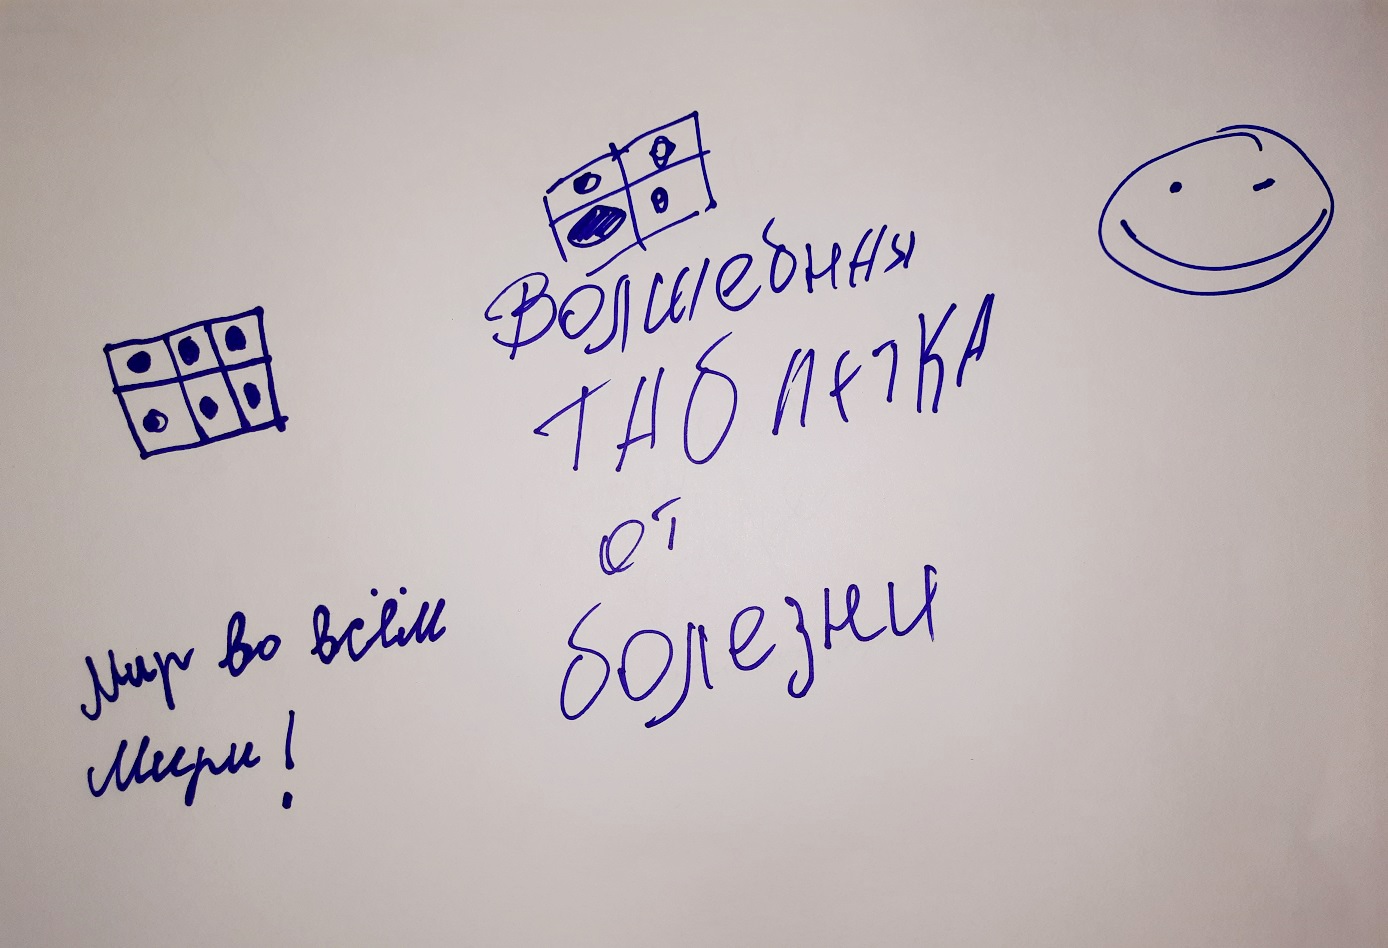 Волшебная
ТАБЛЕТКА
от
болезни
Мир во всём
Мири!